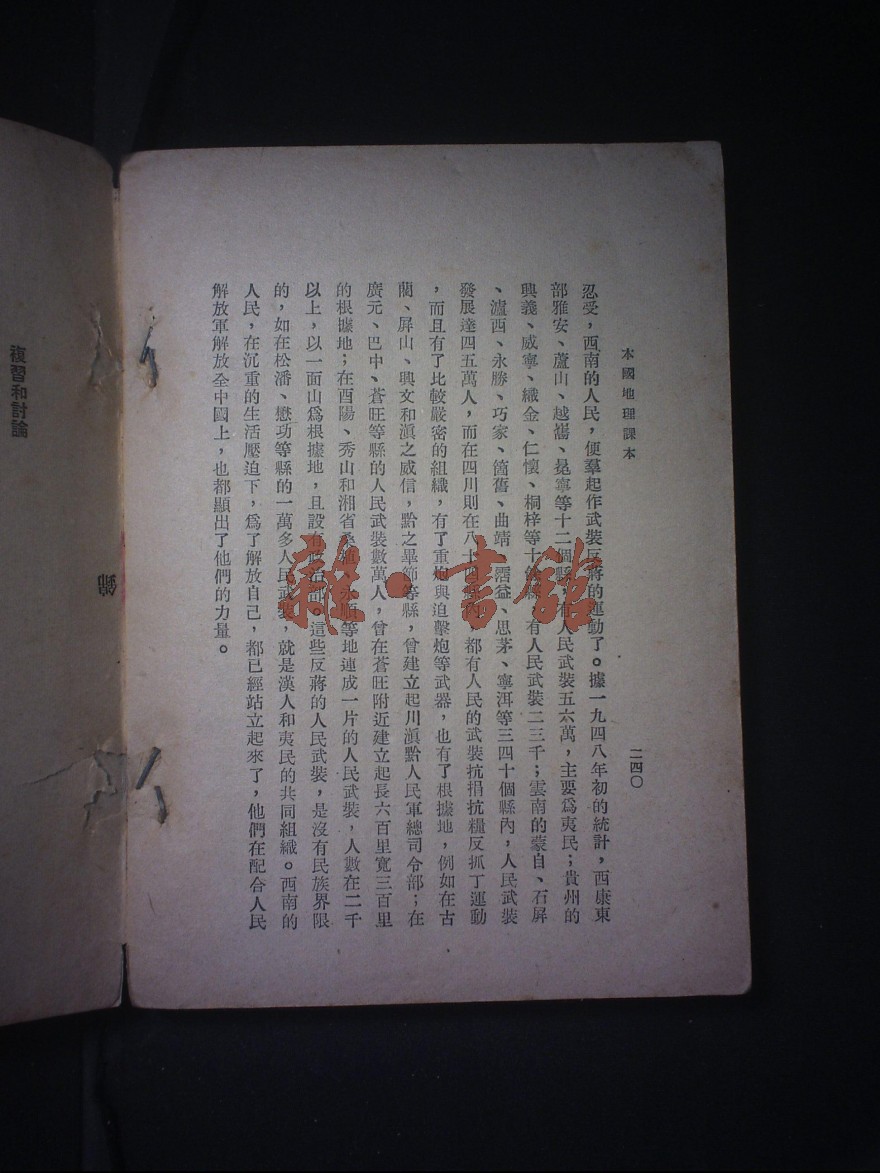 本國地理課本
二四〇
忍受，西南的人民，便羣起作武裝反蔣的運動了。據一九四八年初的統計，西康東
部雅安、蘆山、越嶲、冕寧等十二個縣，有人民武裝五六萬，主要爲夷民；貴州的
興義、威寧、織金、仁懷、桐梓等十餘縣，有人民武裝二三千；雲南的蒙自、石屏
、瀘西、永勝、巧家、箇舊、曲靖、霑益、思茅、寧洱等三四十個縣內，人民武裝
發展達四五萬人，而在四川則在八十四縣內，都有人民的武裝抗捐抗糧反抓丁運動
，而且有了比較嚴密的組織，有了重炮與迫擊炮等武器，也有了根據地，例如在古
藺、屏山、興文和滇之威信，黔之畢節等縣，曾建立起川滇黔人民軍總司令部；在
廣元、巴中、蒼旺等縣的人民武裝數萬人，曾在蒼旺附近建立起長六百里寬三百里
的根據地；在酉陽、秀山和湘省桑植、永順等地連成一片的人民武裝，人數在二千
以上，以一面山爲根據地，且設有政治部。這些反蔣的人民武裝，是沒有民族界限
的，如在松潘、懋功等縣的一萬多人民武裝，就是漢人和夷民的共同組織。西南的
人民，在沉重的生活壓迫下，爲了解放自己，都已經站立起來了，他們在配合人民
解放軍解放全中國上，也都顯出了他們的力量。
複習和討論
雜·書館